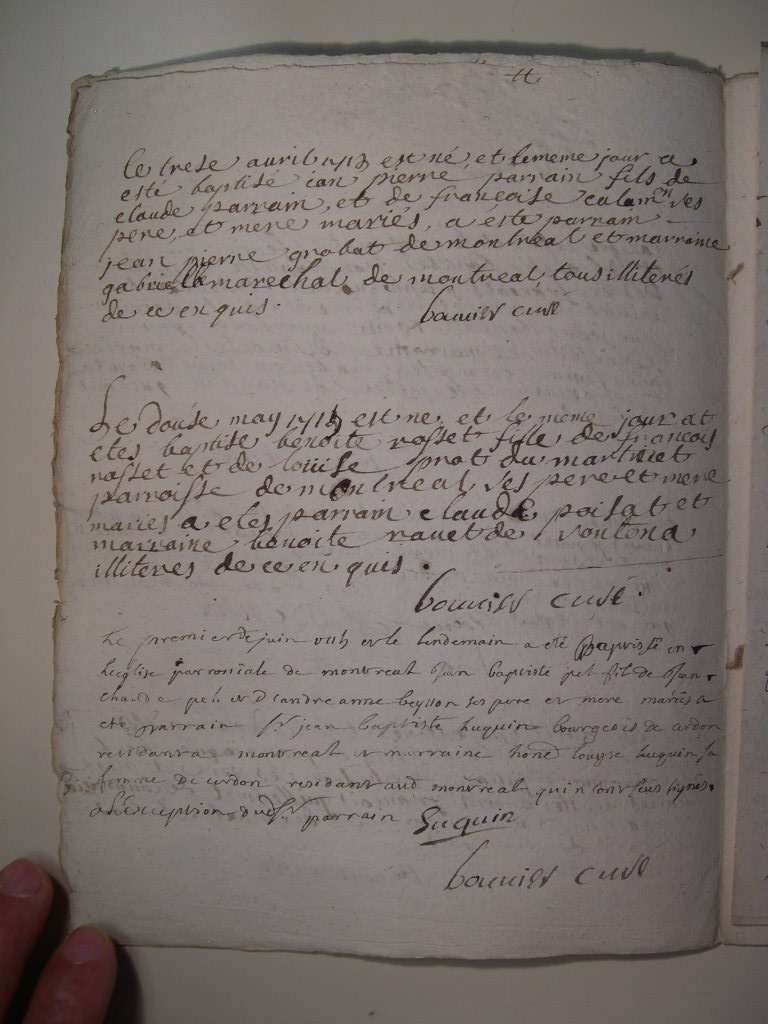 tt
le trese avril 1715 est né, et lememe jour a
esté baptisé ian pierre parrain fils de
claude parram, et de francoise calam^n ses
pere, et mere mariés, a este parram
jean pierre grobat demontreal et marraine
gabriella marechal de montreal, tous illiterés
de ce en quis.
bouvier curé
Le douse may 1715 est ne, et le meme jour at
etes baptise benoite rosset fille de francois
rosset et de louise prat du martinet
parroisse de montreal ses pere et mere
maries a etes parram claude poisat et
marraine benoite ravet de
illiteres de ce en quis.
bouvier curé.
Le premier de juin et le lendemain a eté Baptisté en
leglise parrossiale de montreal Jean baptiste pel fil de Jean
claude pel et d'eandreanne beysson ses pere et mere mariés a
eté parrain s^r jean baptiste huquin bourgeois de cerdon
residant a montreal et marraine hone louyse huquin sa
femme de cerdon residant aud montreal qui n'ont sceus signer
a lexception dud s^r parrain Suquin
bouvier curé